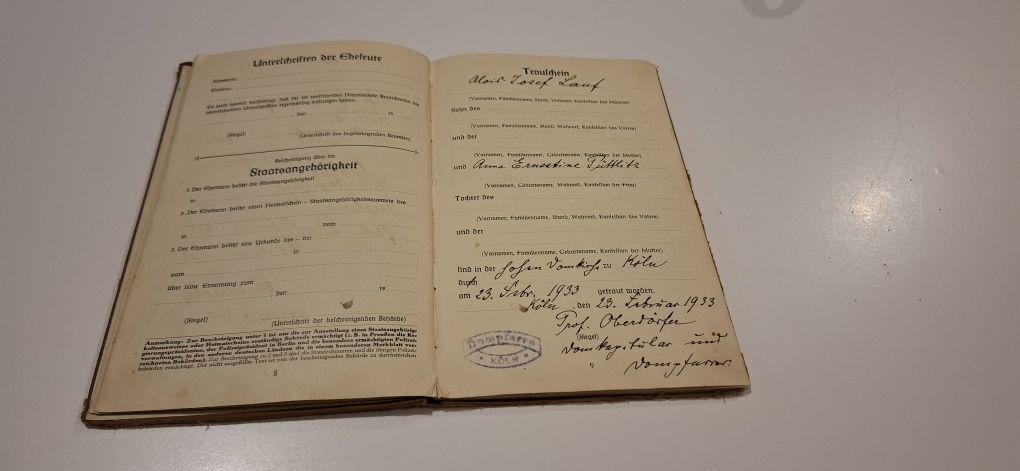 Unterschriften der Eheleute
Ehemann:
Ehefrau:
Es wird hiermit bescheinigt, daß die im vorstehenden Heiratsschein Bezeichneten die
obenstehenden Unterschriften eigenhändig vollzogen haben.
, den 19
(Siegel) (Unterschrift des beglaubigenden Beamten)
Bescheinigung über die
Staatsangehörigkeit
1. Der Ehemann besitzt die Staatsangehörigkeit
in
2. Der Ehemann besitzt einen Heimatschein – Staatsangehörigkeitsausweis des
in vom
3. Der Ehemann besitzt eine Urkunde des – der
in
vom
über seine Ernennung zum
, den 19
(Siegel) (Unterschrift der bescheinigenden Behörde)
Anmerkung: Zur Bescheinigung unter 1 ist nur die zur Ausstellung eines Staatsangehörig-
keitsausweises zuständige Behörde ermächtigt (z. B. in Preußen die Re-
gierungspräsidenten, der Polizeipräsident in Berlin und die besonders ermächtigten Polizei-
verwaltungen, in den anderen deutschen Ländern die in einem besonderen Merkblatt ver-
zeichneten Behörden). Zur Bescheinigung zu 2 und 3 sind die Standesbeamten und die übrigen Polizei-
behörden ermächtigt. Der nicht ausgefüllte Text ist von der bescheinigenden Behörde zu durchstreichen
8
Trauschein
Alois Josef Lauf
(Vornamen, Familienname, Stand, Wohnort, Konfession des Mannes)
Sohn des
(Vornamen, Familienname, Stand, Wohnort, Konfession des Vaters)
und der
(Vornamen, Familienname, Geburtsname, Konfession der Mutter)
und Anna Ernestine
(Vornamen, Geburtsname, Wohnort, Konfession der Frau)
Tochter des
(Vornamen, Familienname, Stand, Wohnort, Konfession des Vaters)
und der
(Vornamen, Familienname, Geburtsname, Konfession der Mutter)
sind in der hohen Domkirche zu Köln
durch
am 23. Febr. 1933 getraut worden.
Köln, den 23. Februar 1933
Prof. Oberdörfer
(Siegel)
Domkapitular und
Dompfarrer.
Dompfarre
• KÖLN •
9